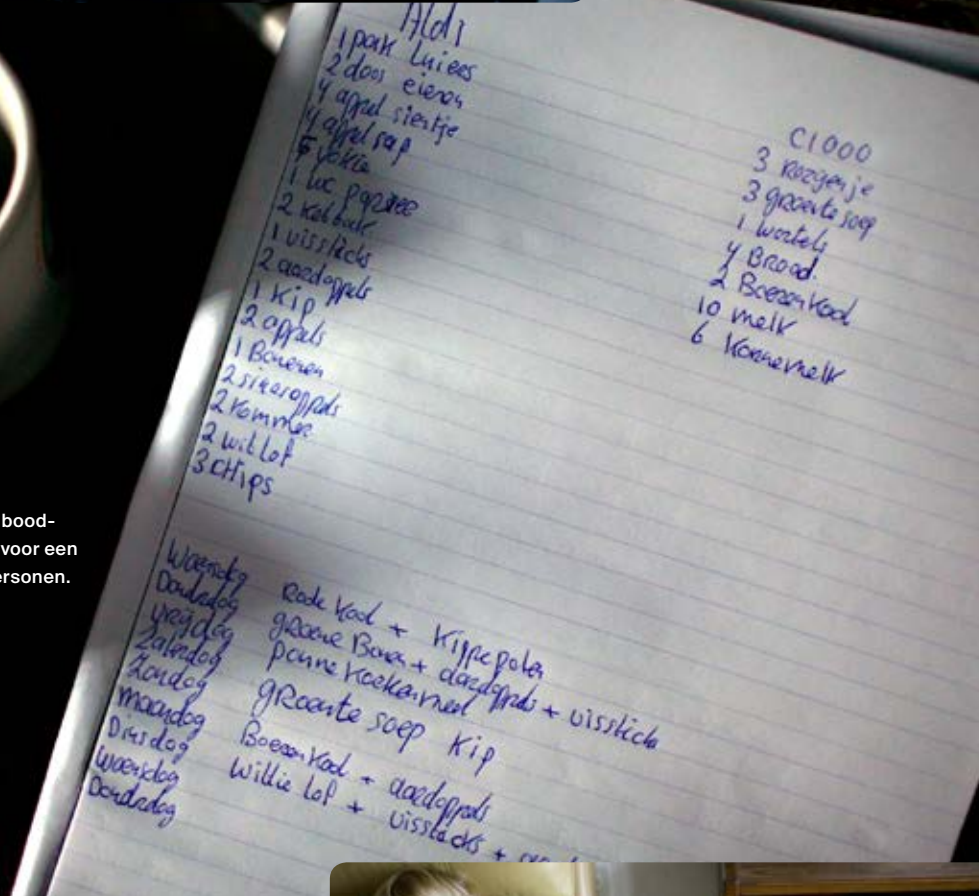 Aldi
1 pak luiers
2 doos eieren
4 appel siertje
4 appel sap
1 wc papier
2 Kelbak
1 vissticks
2 aardappels
1 Kip
2 appels
1 Bananen
2 sinasappels
2 Kommer
2 wit lof
3 CHips
C1000
3 Rozyenje
3 groente soep
1 wortels
4 Brood.
2 Boerenkool
10 melk
6 Karnemelk
Woensdag Rode Kool + Kippepoten
Donderdag groene Bonen + aardappels + vissticks
vrijdag panne koekenmeel
Zaterdag groente soep Kip
Zondag
maandag Boerenkool + aardappels
Dinsdag Willie lof + vissticks +
Woensdag
Donderdag
bood-
voor een
ersonen.